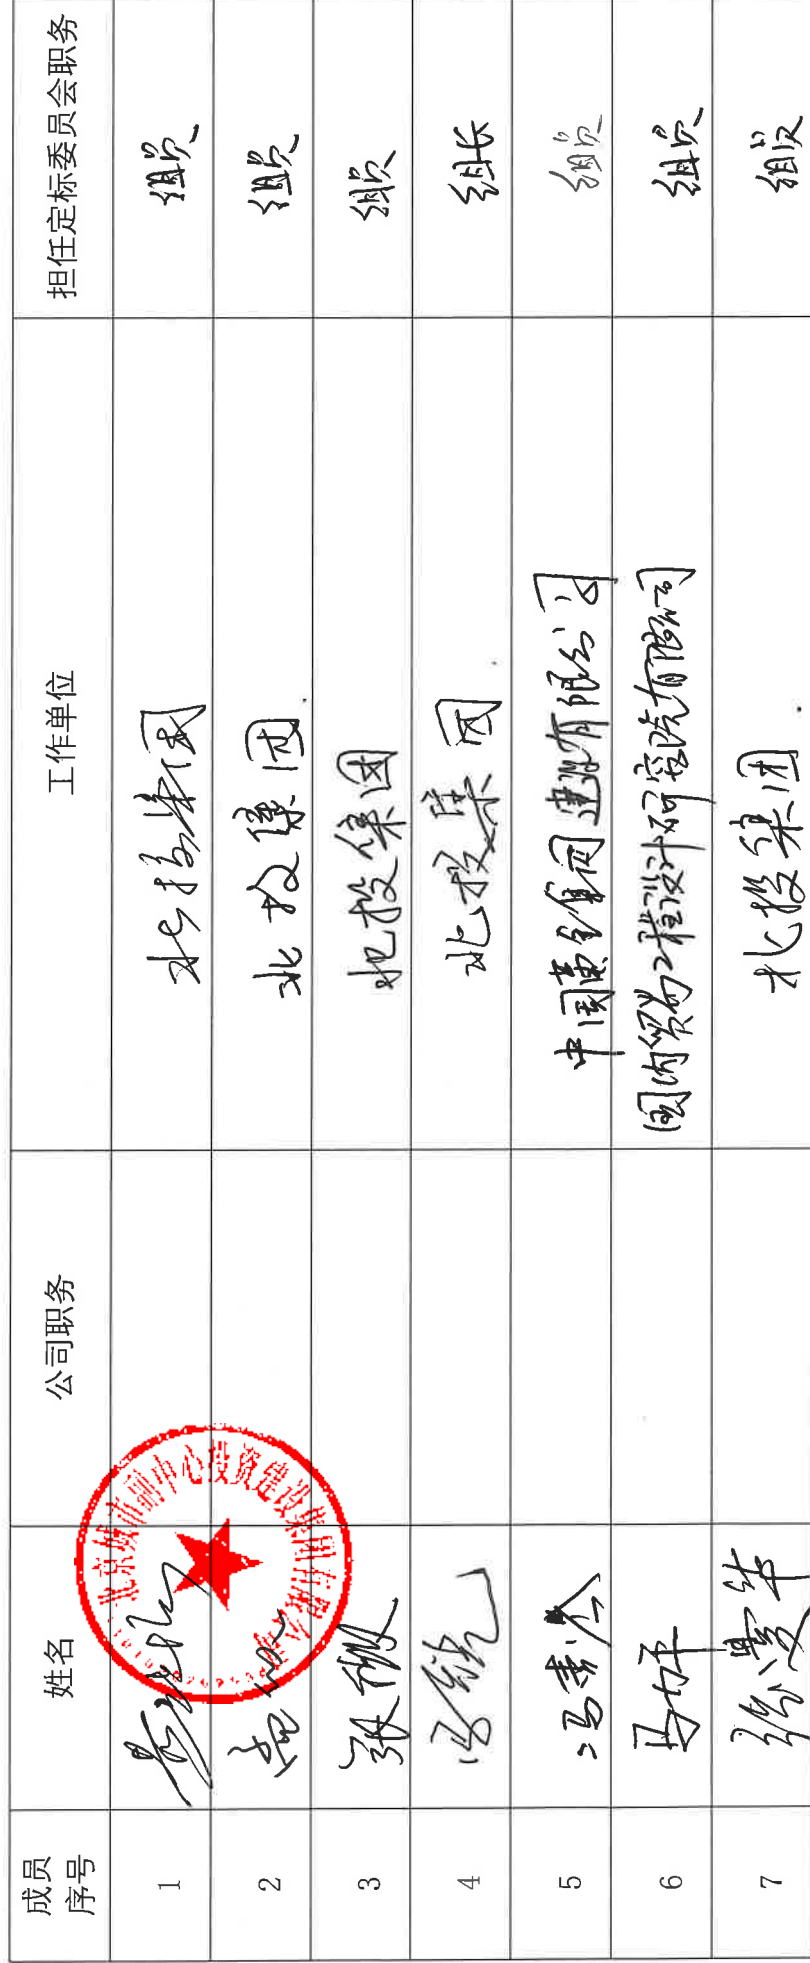 成员序号 姓名 公司职务 工作单位 担任定标委员会职务
1 北投集团 组员
2 北投集团 组员
3 张 北投集团 组员
4 冯 北投集团 组长
5 冯 中国黄金集团建设有限公司 组员
6 马 国内贸易工程设计研究院有限公司 组员
7 北投集团 组员
北京城市副中心投资建设集团有限公司